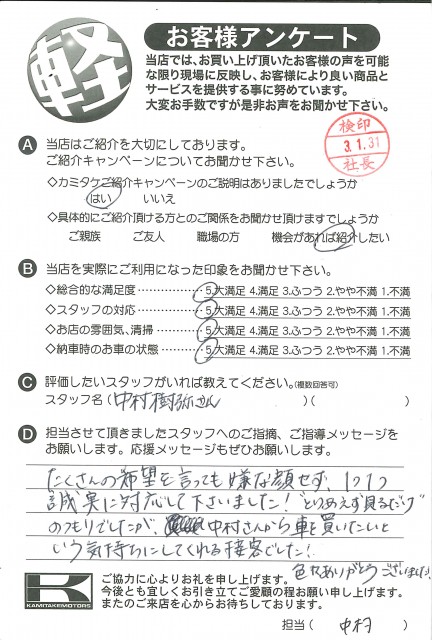 軽
お客様アンケート
当店では、お買い上げ頂いたお客様の声を可能
な限り現場に反映し、お客様により良い商品と
サービスを提供する事に努めています。
大変お手数ですが是非お声をお聞かせ下さい。
検印
3.1.31
社長
A 当店はご紹介を大切にしております。
ご紹介キャンペーンについてお聞かせ下さい。
◇カミタケご紹介キャンペーンのご説明はありましたでしょうか
はい いいえ
◇具体的にご紹介頂ける方とのご関係をお聞かせ頂けますでしょうか
ご親族 ご友人 職場の方 機会があれば紹介したい
B 当店を実際にご利用になった印象をお聞かせ下さい。
◇総合的な満足度……………5.大満足 4.満足 3.ふつう 2.やや不満 1.不満
◇スタッフの対応……………5.大満足 4.満足 3.ふつう 2.やや不満 1.不満
◇お店の雰囲気、清掃………5.大満足 4.満足 3.ふつう 2.やや不満 1.不満
◇納車時のお車の状態………5.大満足 4.満足 3.ふつう 2.やや不満 1.不満
C 評価したいスタッフがいれば教えてください。(複数回答可)
スタッフ名(中村樹弥さん )( )
D 担当させて頂きましたスタッフへのご指摘、ご指導メッセージを
お願いします。応援メッセージもぜひお願いします。
たくさんの希望を言っても嫌な顔せず、1つ1つ
誠実に対応して下さいました!"とりあえず見るだけ"
のつもりでしたが 中村さんから車を買いたいと
いう気持ちにしてくれる接客でした!
色々ありがとうございました!
K
KAMITAKEMOTORS
ご協力に心よりお礼を申し上げます。
今後とも宜しくお引き立てご愛顧の程お願い申し上げます。
またのご来店を心からお待ちしております。
担当( 中村 )